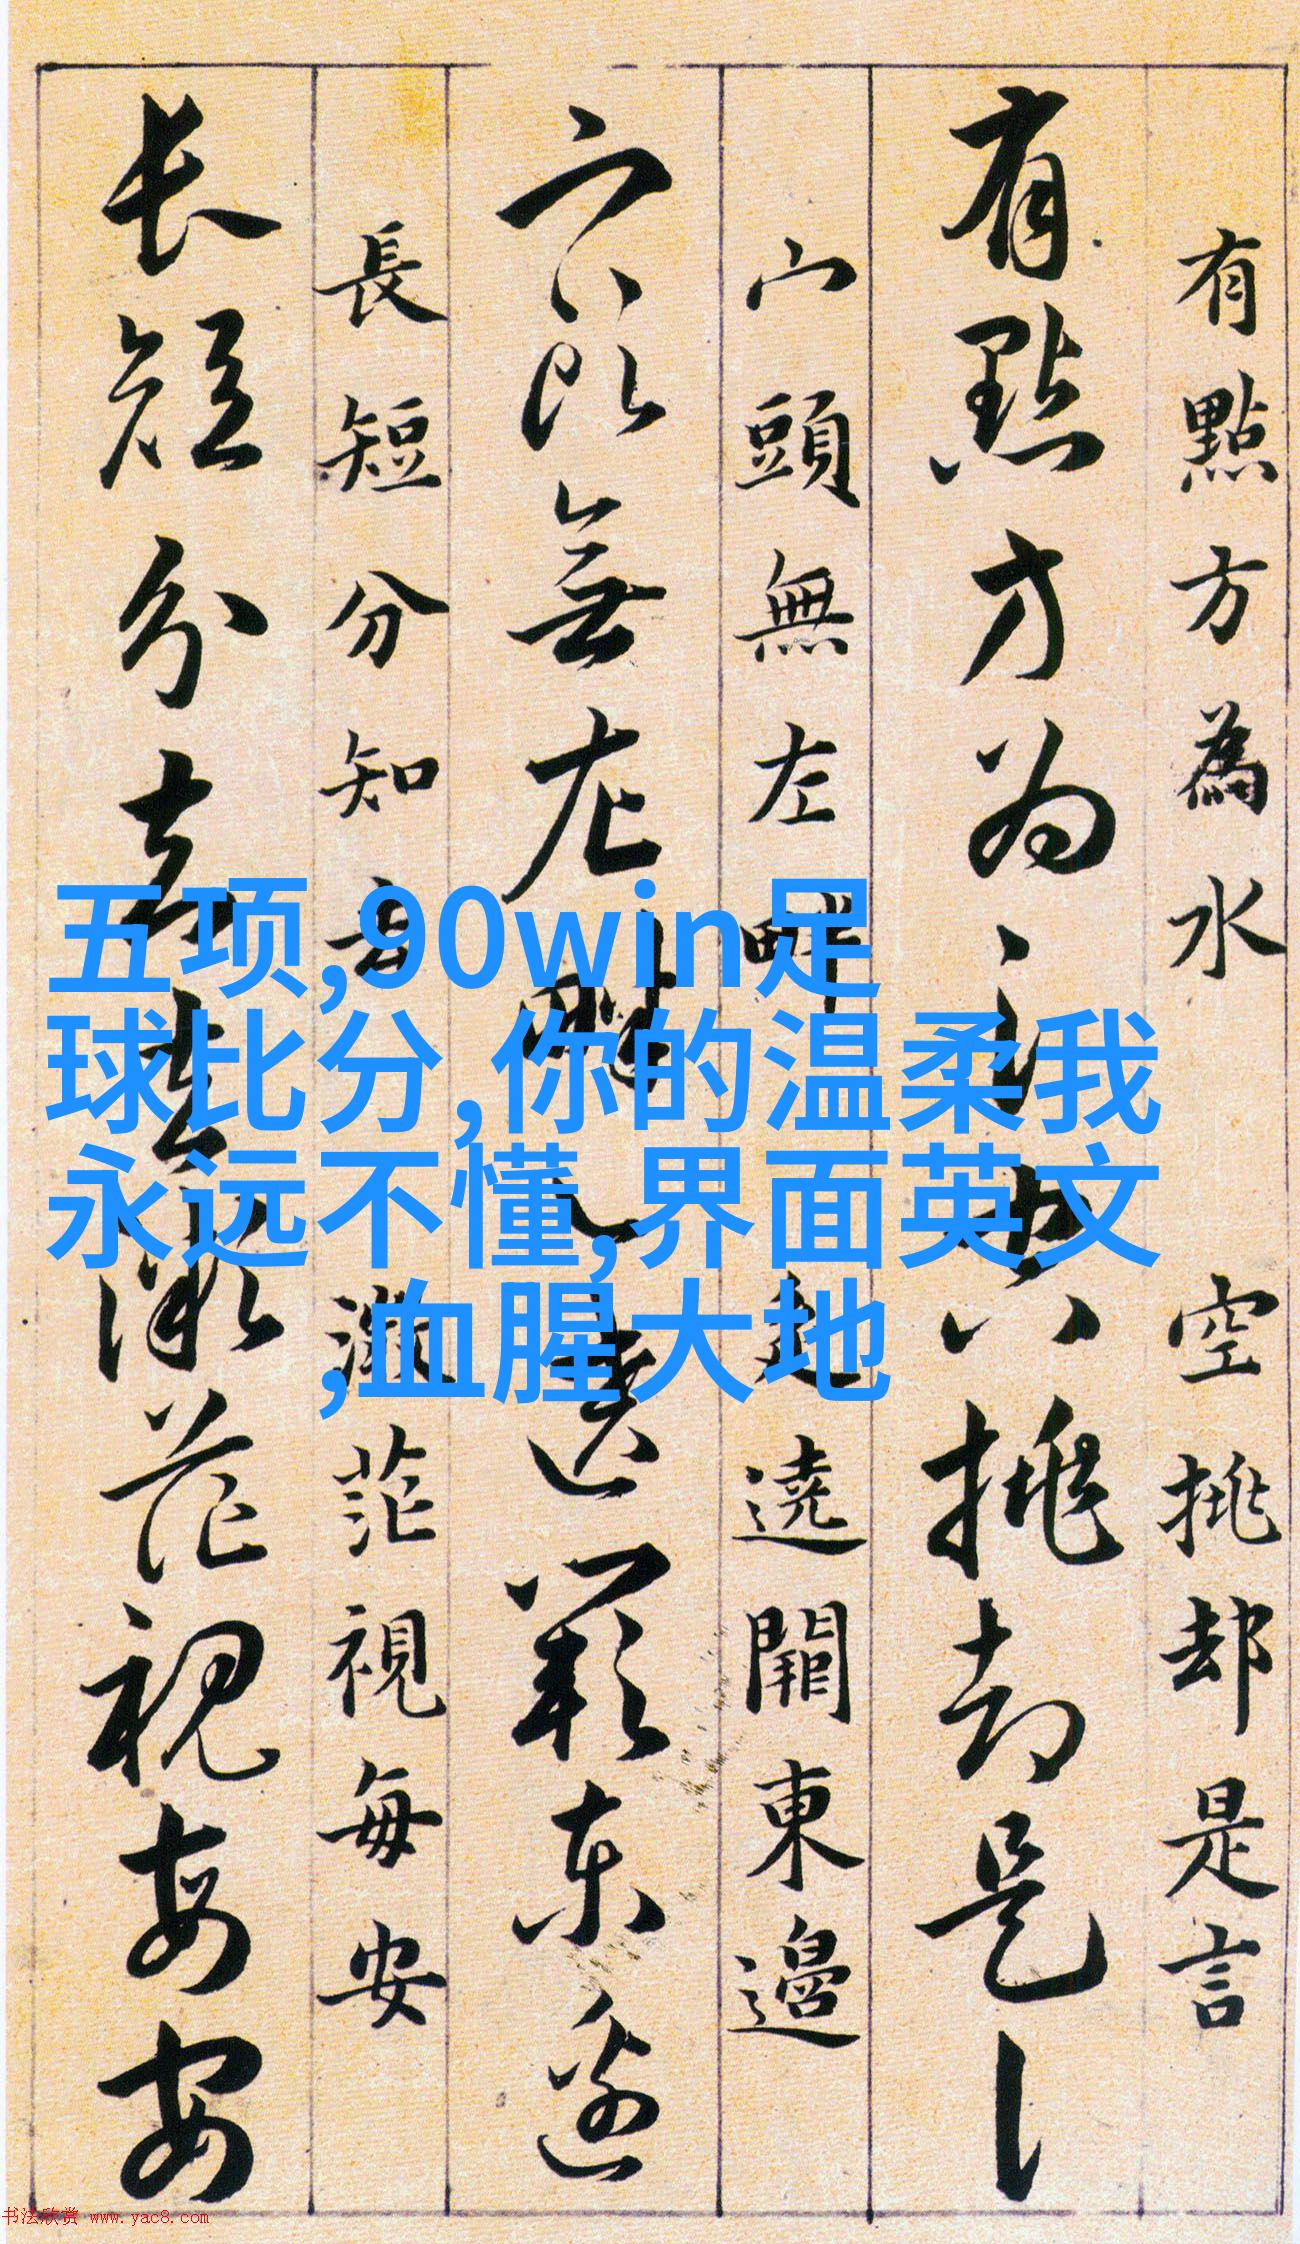 有點方為水 空挑却是言
有點方为 挑却是
宀頭無左畔 辵遶東邊
無左畔 東邊
長短分知去 微茫視每安
长短分知去 微茫視每安
五项,90win足
球比分,你的温柔我
永远不懂,界面英文
,血腥大地
书法欣赏 www.yac8.com